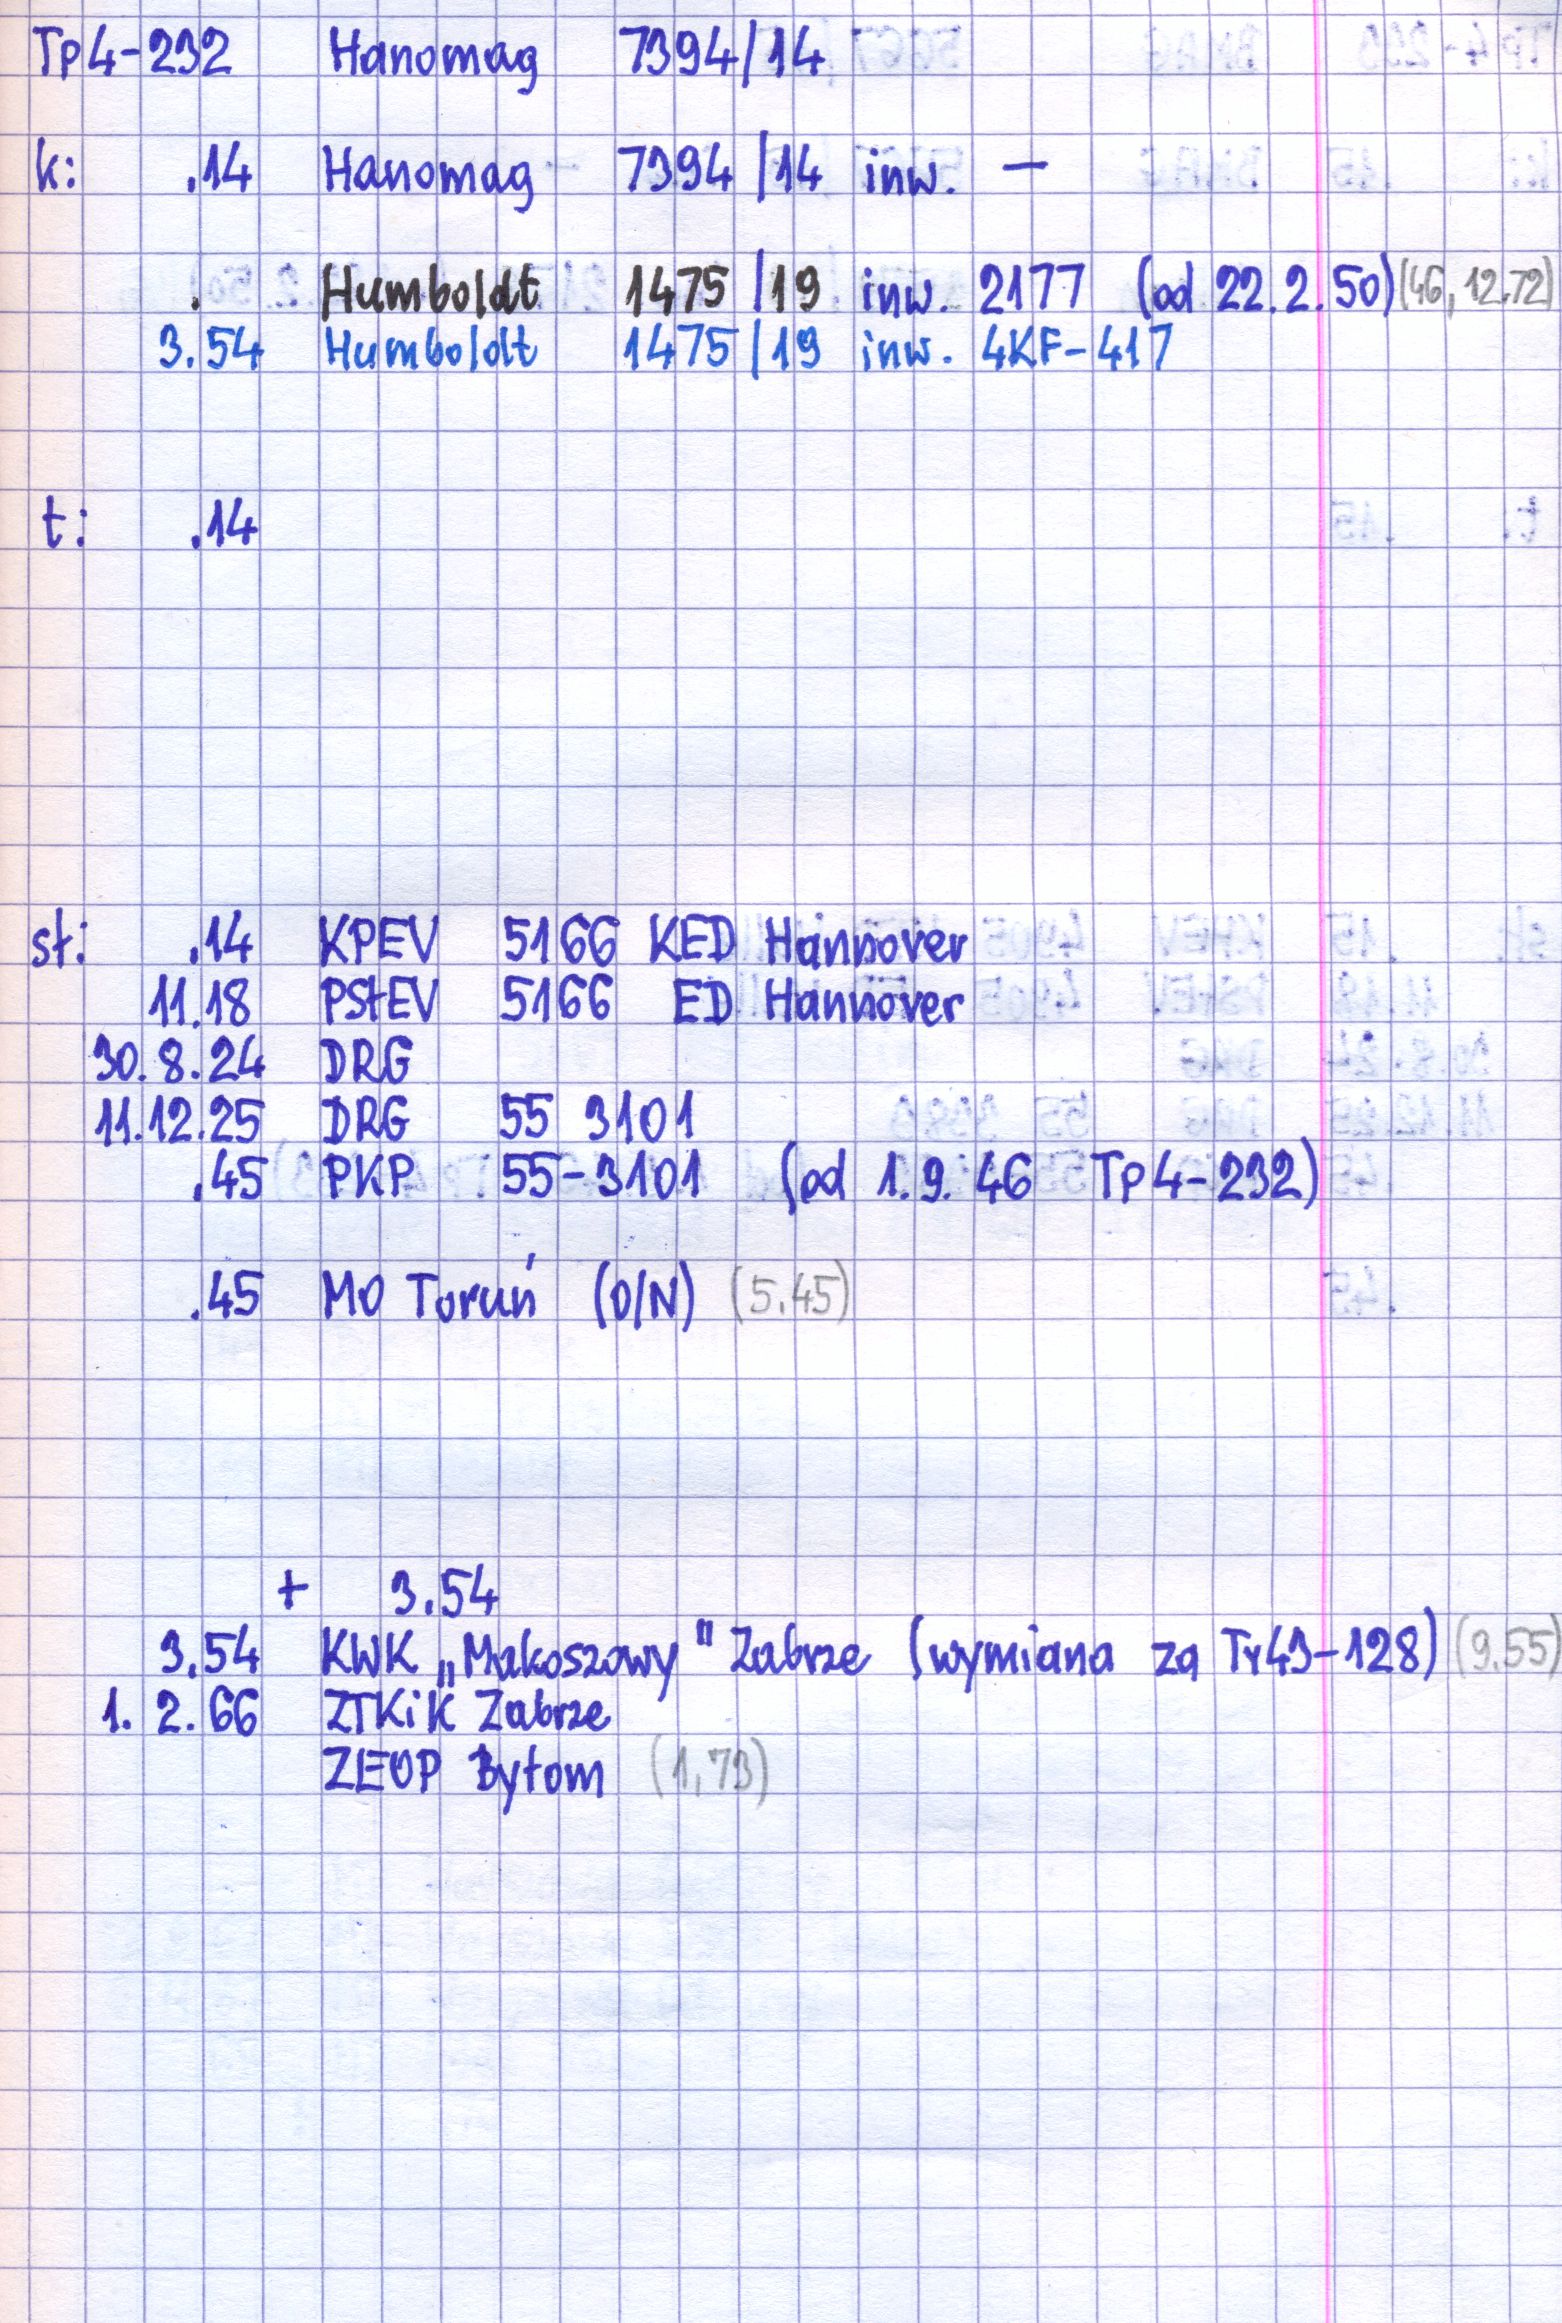 Tp4-232 Hanomag 7394/14
k: .14 Hanomag 7394/14 inw. —
. Humboldt 1475/19 inw. 2177 (od 22.2.50) (46, 12.72)
3.54 Humboldt 1475/19 inw. 4KF-417
t: .14
st: .14 KPEV 5166 KED Hannover
11.18 PStEV 5166 ED Hannover
30.8.24 DRG
11.12.25 DRG 55 3101
.45 PKP 55-3101 (od 1.9.46 Tp4-232)
.45 MO Toruń (O/N) (5.45)
+ 3.54
3.54 KWK „Makoszowy" Zabrze (wymiana za Ty43-128) (9.55)
1.2.66 ZTKiK Zabrze
ZEOP Bytom (1,73)